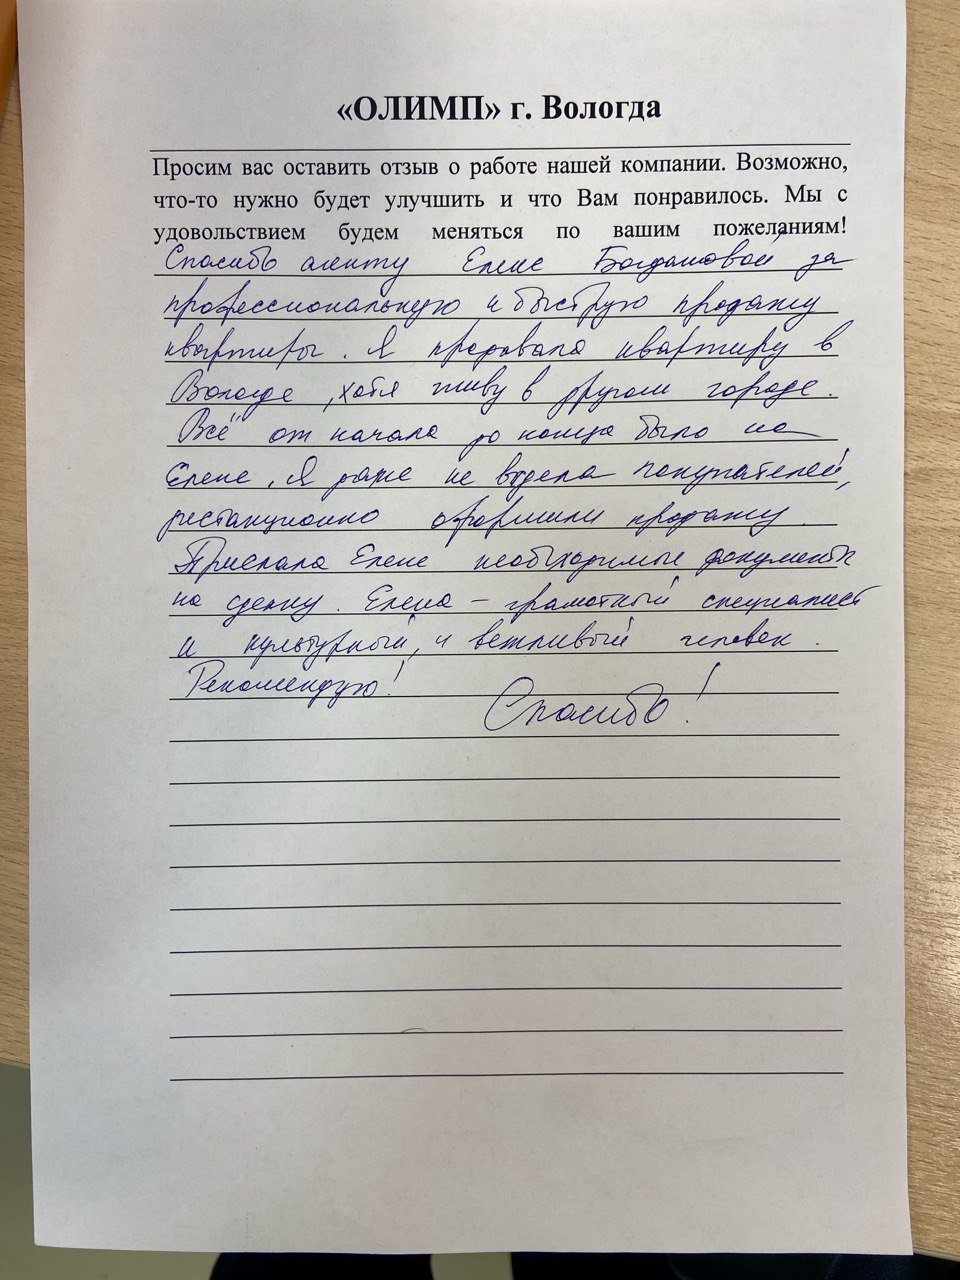 «ОЛИМП» г. Вологда
Просим вас оставить отзыв о работе нашей компании. Возможно,
что-то нужно будет улучшить и что Вам понравилось. Мы с
удовольствием будем меняться по вашим пожеланиям!
Спасибо агенту Елене Богдановой за
профессиональную и быструю продажу
квартиры. Я продавала квартиру в
Вологде, хотя живу в другом городе.
Всё от начала до конца было на
Елене, Я даже не видела покупателей,
дистанционно оформили продажу.
Прислала Елене необходимые документы
на сделку. Елена – грамотный специалист
и культурный, и вежливый человек.
Рекомендую!
Спасибо!